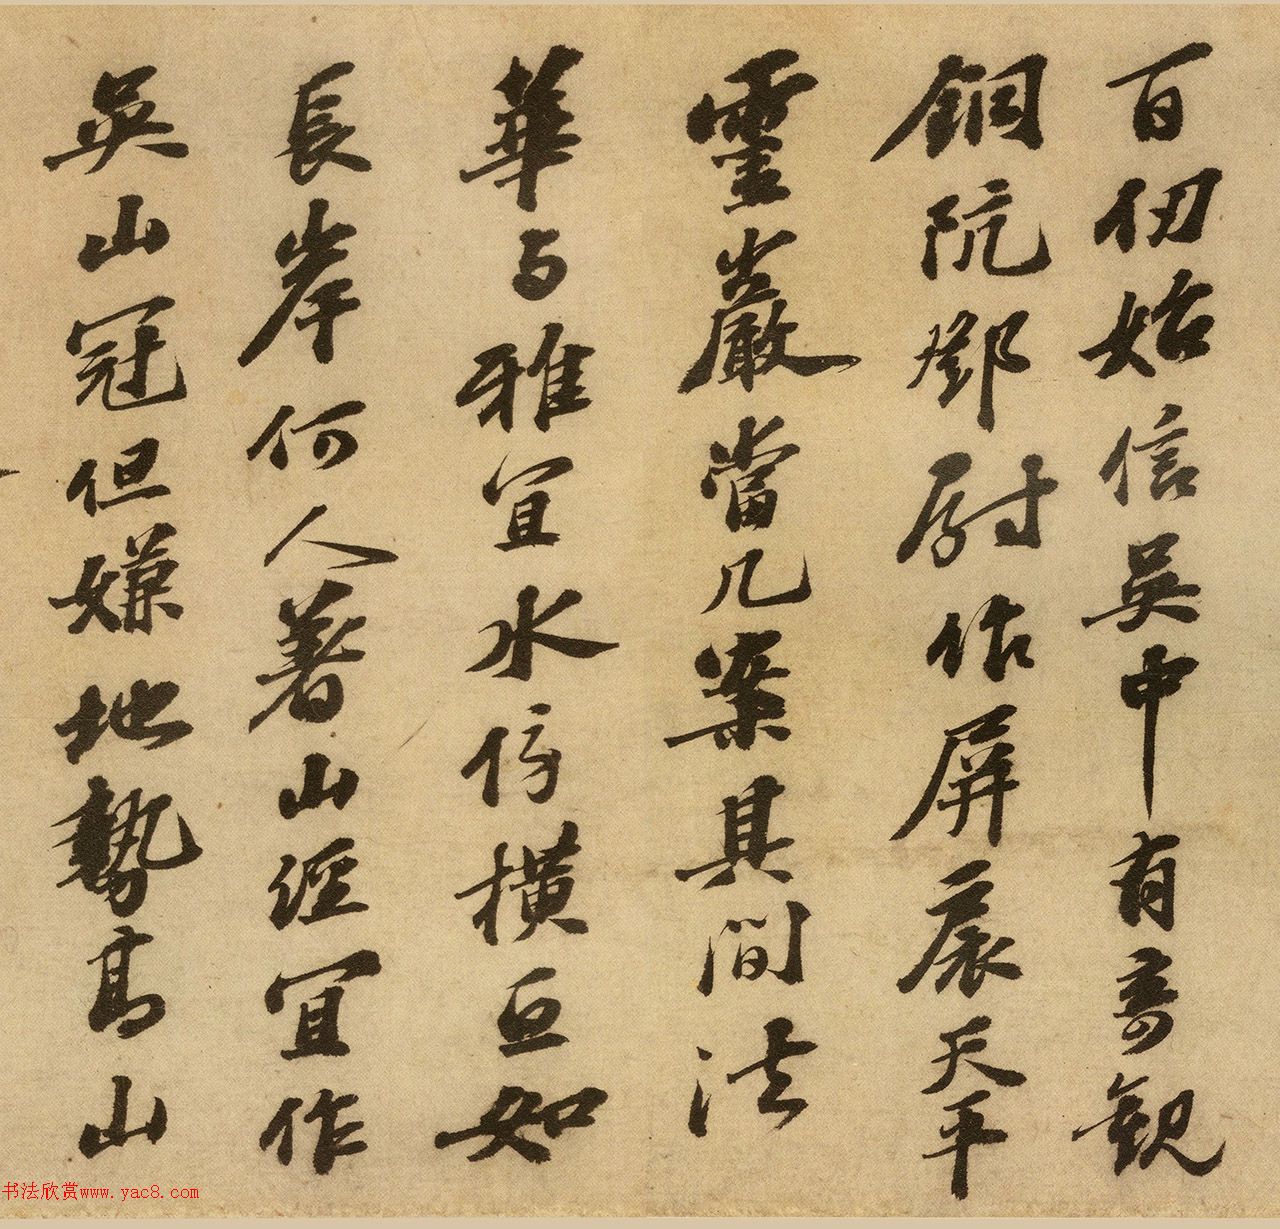 百仞始信吳中有奇觀
銅阬鄧尉作屏扆天平
靈巖當几案其間法
華與雅宜水傍橫亙如
長岸何人著山經宜作
吳山冠但嫌地勢高山
书法欣赏www.yac8.com